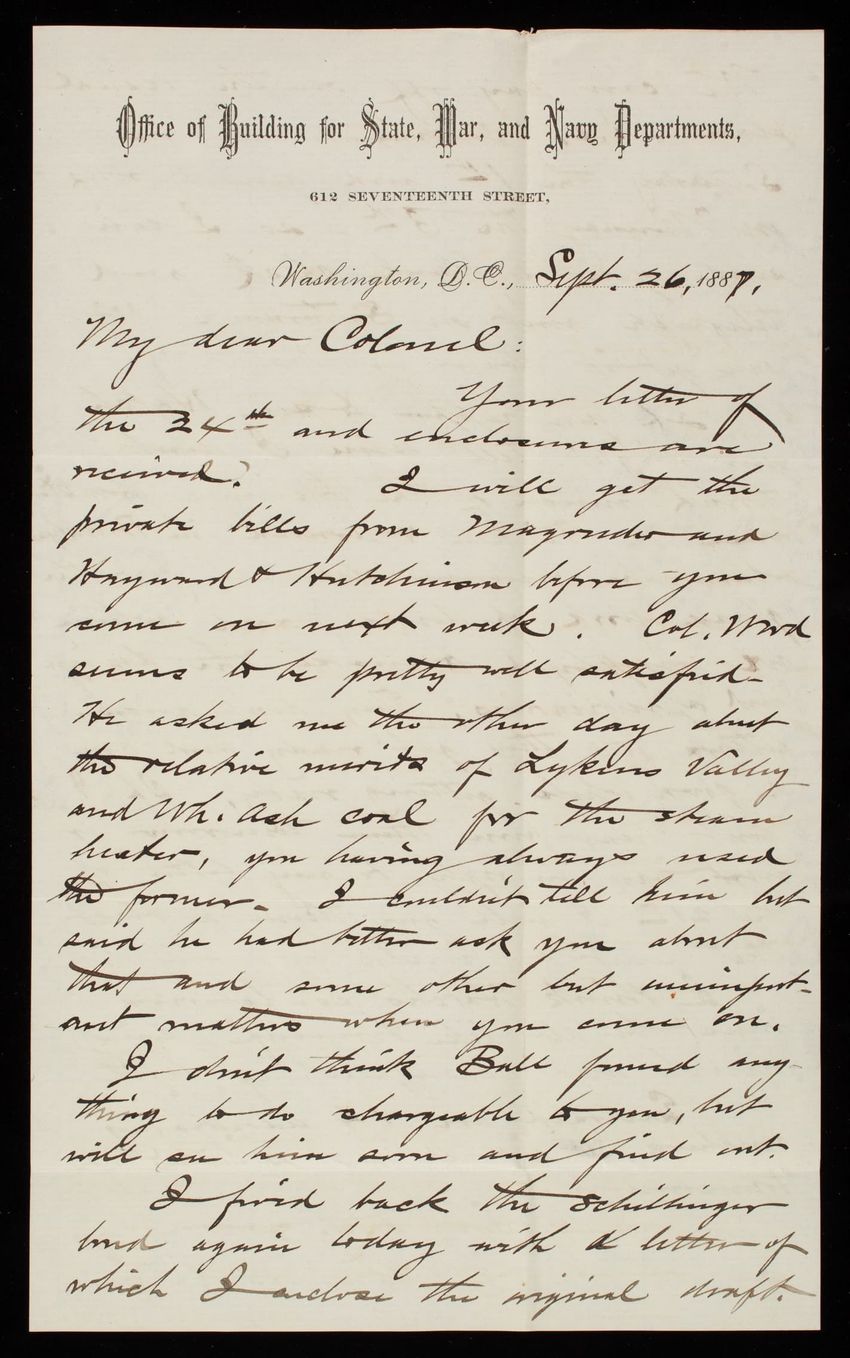 Office of Building for State, War, and Navy Departments,
612 SEVENTEENTH STREET,
Washington, D.C., Sept. 26, 1887.
My dear Colonel:
Your letter of
the 24th and enclosures are
received. I will get the
private bills from Magruder and
Hayward & Hutchinson before you
come on next week. Col. Wood
seems to be pretty well satisfied-
He asked me the other day about
the relative merits of Lykens Valley
and Wh. Ash coal for the steam
heater, you having always used
the former- I couldn't tell him but
said he had better ask you about
that and some other but unimport-
ant matters when you come on.
I don't think Ball found any-
thing to do chargeable to you, but
will see him soon and find out.
I fired back the Schillinger
bond again today with a letter of
which I enclose the original draft.